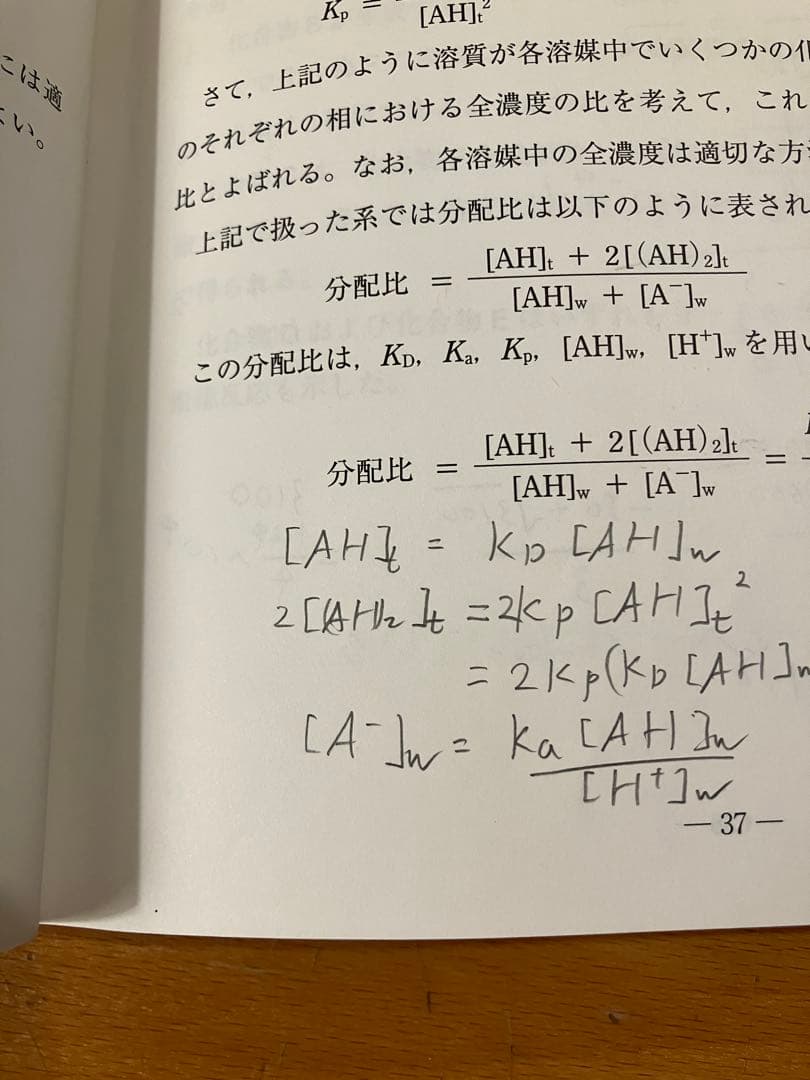 こは適
い。
Kp =
[AH]t²
さて，上記のように溶質が各溶媒中でいくつかの化
のそれぞれの相における全濃度の比を考えて，これ
比とよばれる。なお，各溶媒中の全濃度は適切な方
上記で扱った系では分配比は以下のように表され
分配比 = [AH]t + 2[(AH)2]t / [AH]w + [A⁻]w
この分配比は，KD，Ka，Kp，[AH]w，[H⁺]wを用い
分配比 = [AH]t + 2[(AH)2]t / [AH]w + [A⁻]w =
[AH]t = KD [AH]w
2[(AH)2]t = 2Kp [AH]t²
= 2Kp(KD [AH]w
[A⁻]w = Ka [AH]w / [H⁺]w
— 37 —